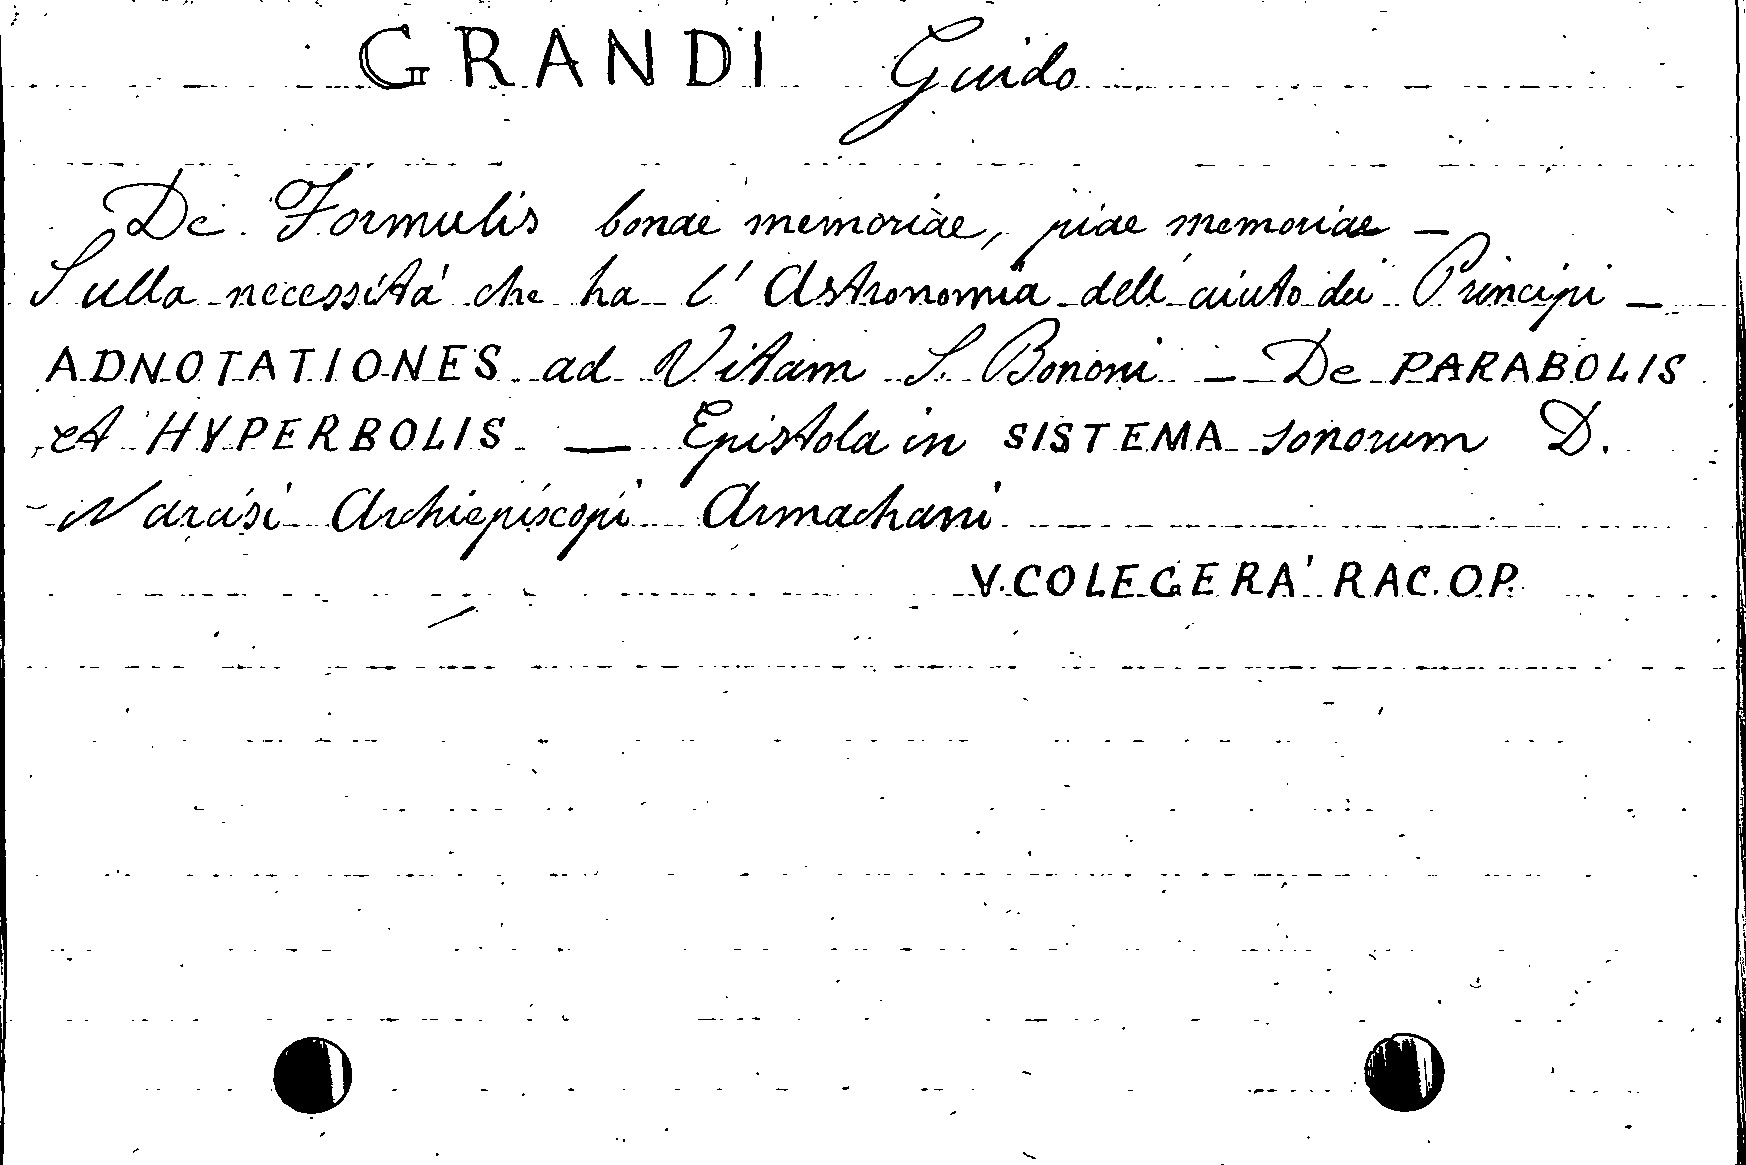 GRANDI Guido
De Formulis bonae memoriae, piae memoriae —
Sulla necessitá che ha l' Astronomia dell' aiuto dei Principi —
ADNOTATIONES ad Vitam S. Bononi — De PARABOLIS
et HYPERBOLIS — Epistola in SISTEMA sonorum D.
Narcisi Archiepiscopi Armachani
V. COLEGERA' RAC. OP.